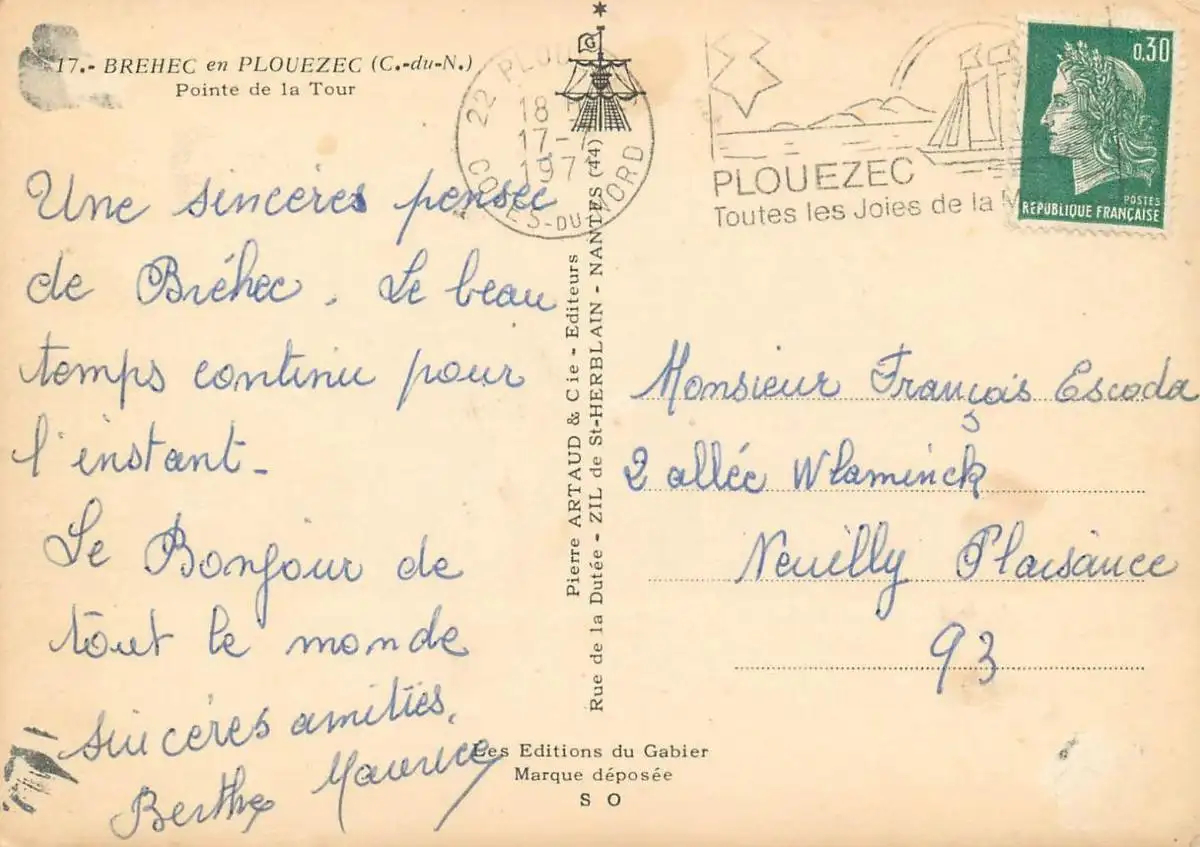 17.- BREHEC en PLOUEZEC (C.-du-N.)
Pointe de la Tour
Une sincères pensée
de Bréhec. Le beau
temps continu pour
l'instant-
Le Bonjour de
tout le monde
sincères amitiés.
Berthe Maurice
22
18 H
17-7
1971
COTES-DU-NORD
PLOUEZEC
Toutes les Joies de la
0,30
POSTES
REPUBLIQUE FRANÇAISE
Pierre ARTAUD & Cie - Editeurs
Rue de la Dutée - ZIL de St-HERBLAIN - NANTES (44)
Monsieur François Escoda
2 allée Wlaminck
Neuilly Plaisance
93
Les Editions du Gabier
Marque déposée
S O